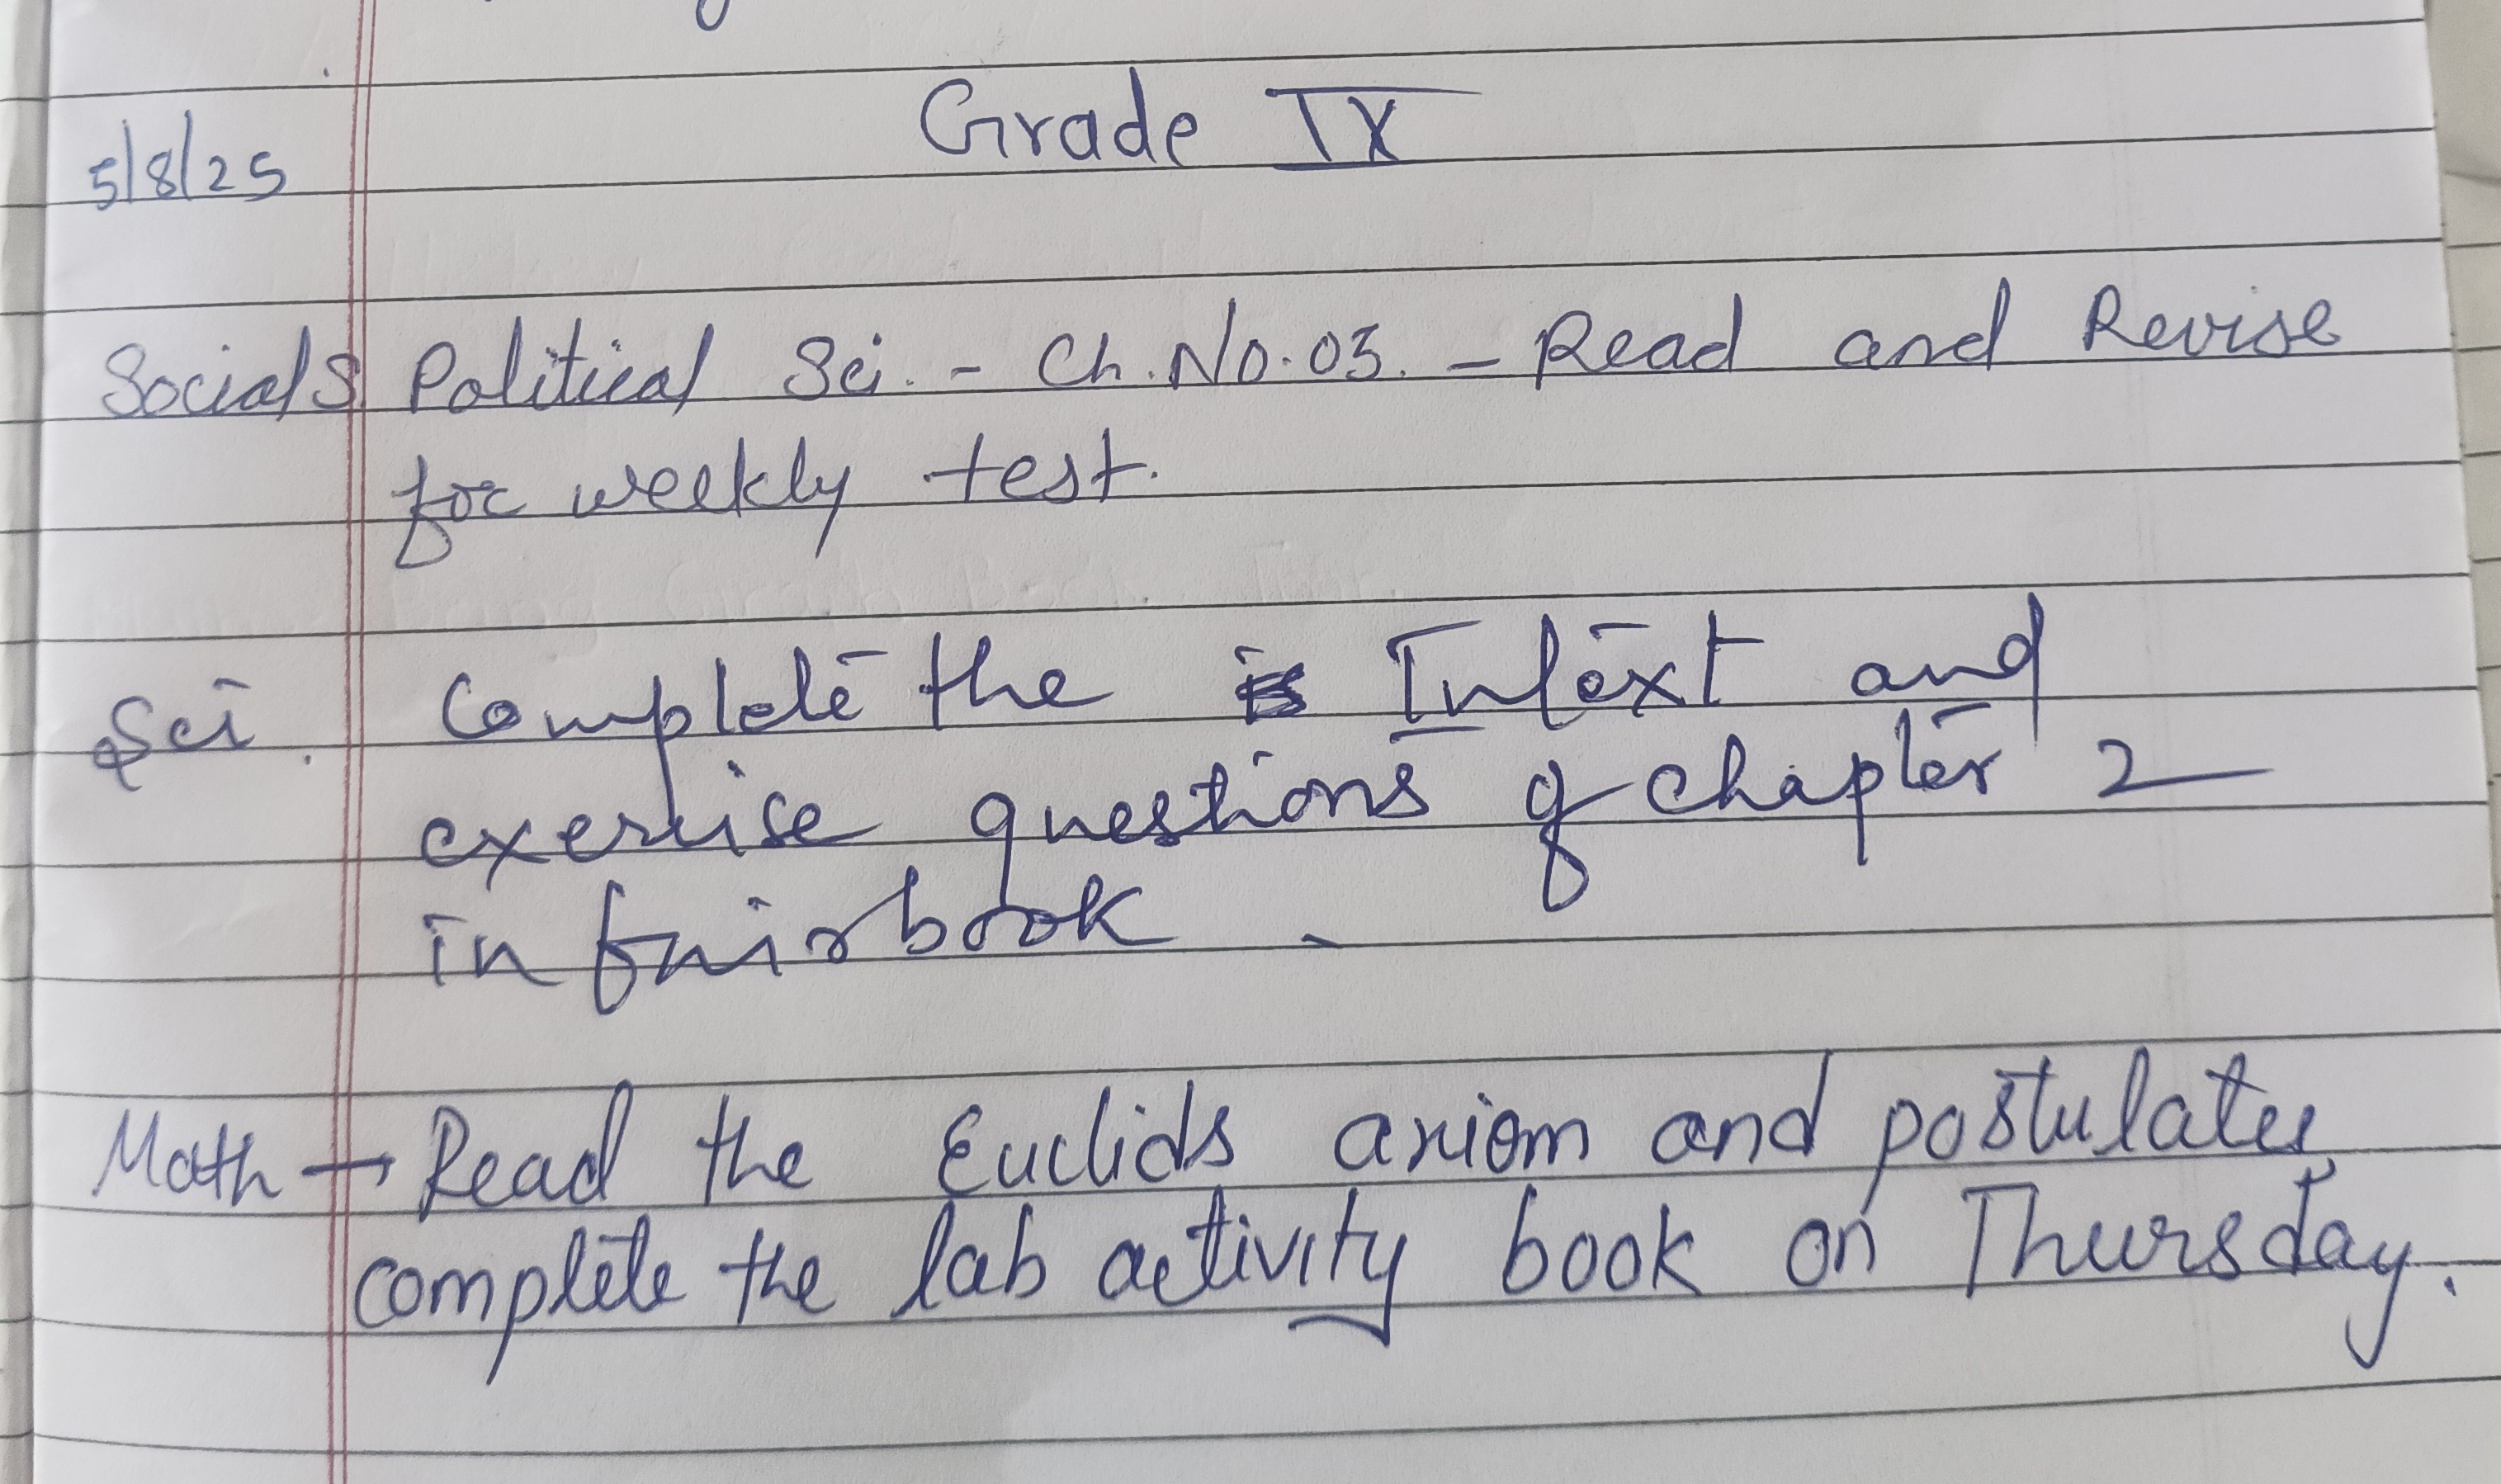 Grade IX
5/8/25
Social S Political Sci. - Ch. No. 03. - Read and Revise
for weekly test.
Sci. Complete the Intext and
exercise questions of chapter 2
in fairbook.
Math → Read the Euclids axiom and postulates,
complete the lab activity book on Thursday.